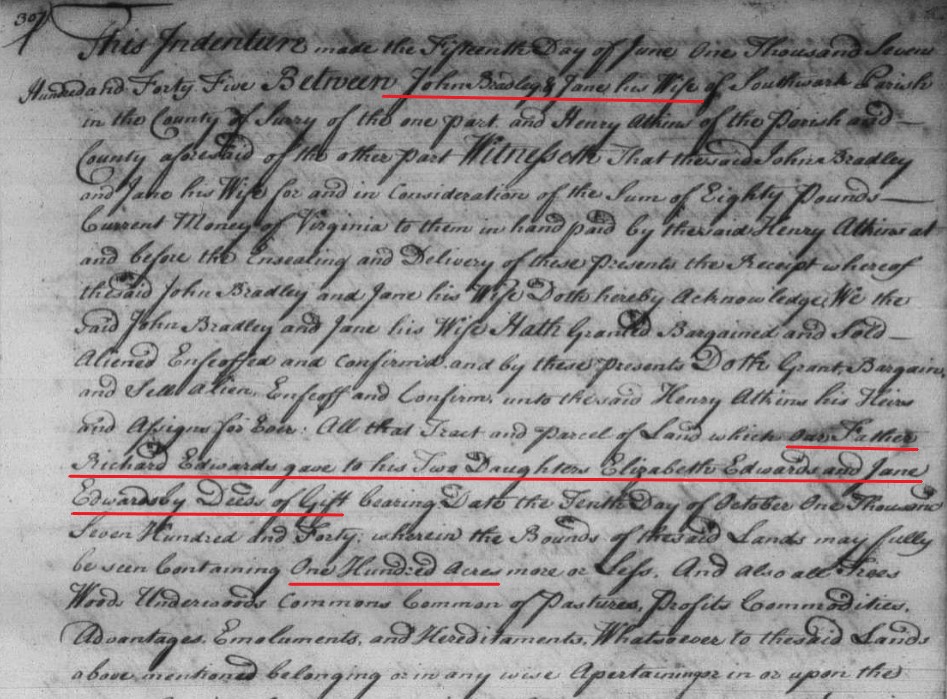 307
This Indenture made the Fifteenth Day of June One Thousand Seven
Hundred and Forty Five Between John Bradley & Jane his Wife of Southwark Parish
in the County of Surry of the one part and Henry Atkins of the Parish and
County aforesaid of the other part Witnesseth That the said John Bradley
and Jane his Wife for and in Consideration of the Sum of Eighty Pounds
Current Money of Virginia to them in hand paid by the said Henry Atkins at
and before the Ensealing and Delivery of these Presents the Receipt whereof
the said John Bradley and Jane his Wife Doth hereby Acknowledge, We the
Said John Bradley and Jane his Wife Hath Granted Bargained and Sold
Aliened Enfeoffed and Confirm'd and by these presents Doth Grant, Bargain,
and Sell Alien, Enfeoff and Confirm, unto the said Henry Atkins his Heirs
and Assigns for Ever: All that Tract and parcel of Land which our Father
Richard Edwards gave to his Two Daughters Elizabeth Edwards and Jane
Edwards by Deeds of Gift bearing Date the Tenth Day of October One Thousand
Seven Hundred and Forty; wherein the Bounds of the said Lands may fully
be seen Containing One Hundred Acres more or Less, And also all Trees
Woods Underwoods Commons Common of Pastures, Profits Commodities,
Advantages, Emoluments, and Hereditaments, Whatsoever to the said Lands
above mentioned belonging or in any wise Apertaining or in or upon the